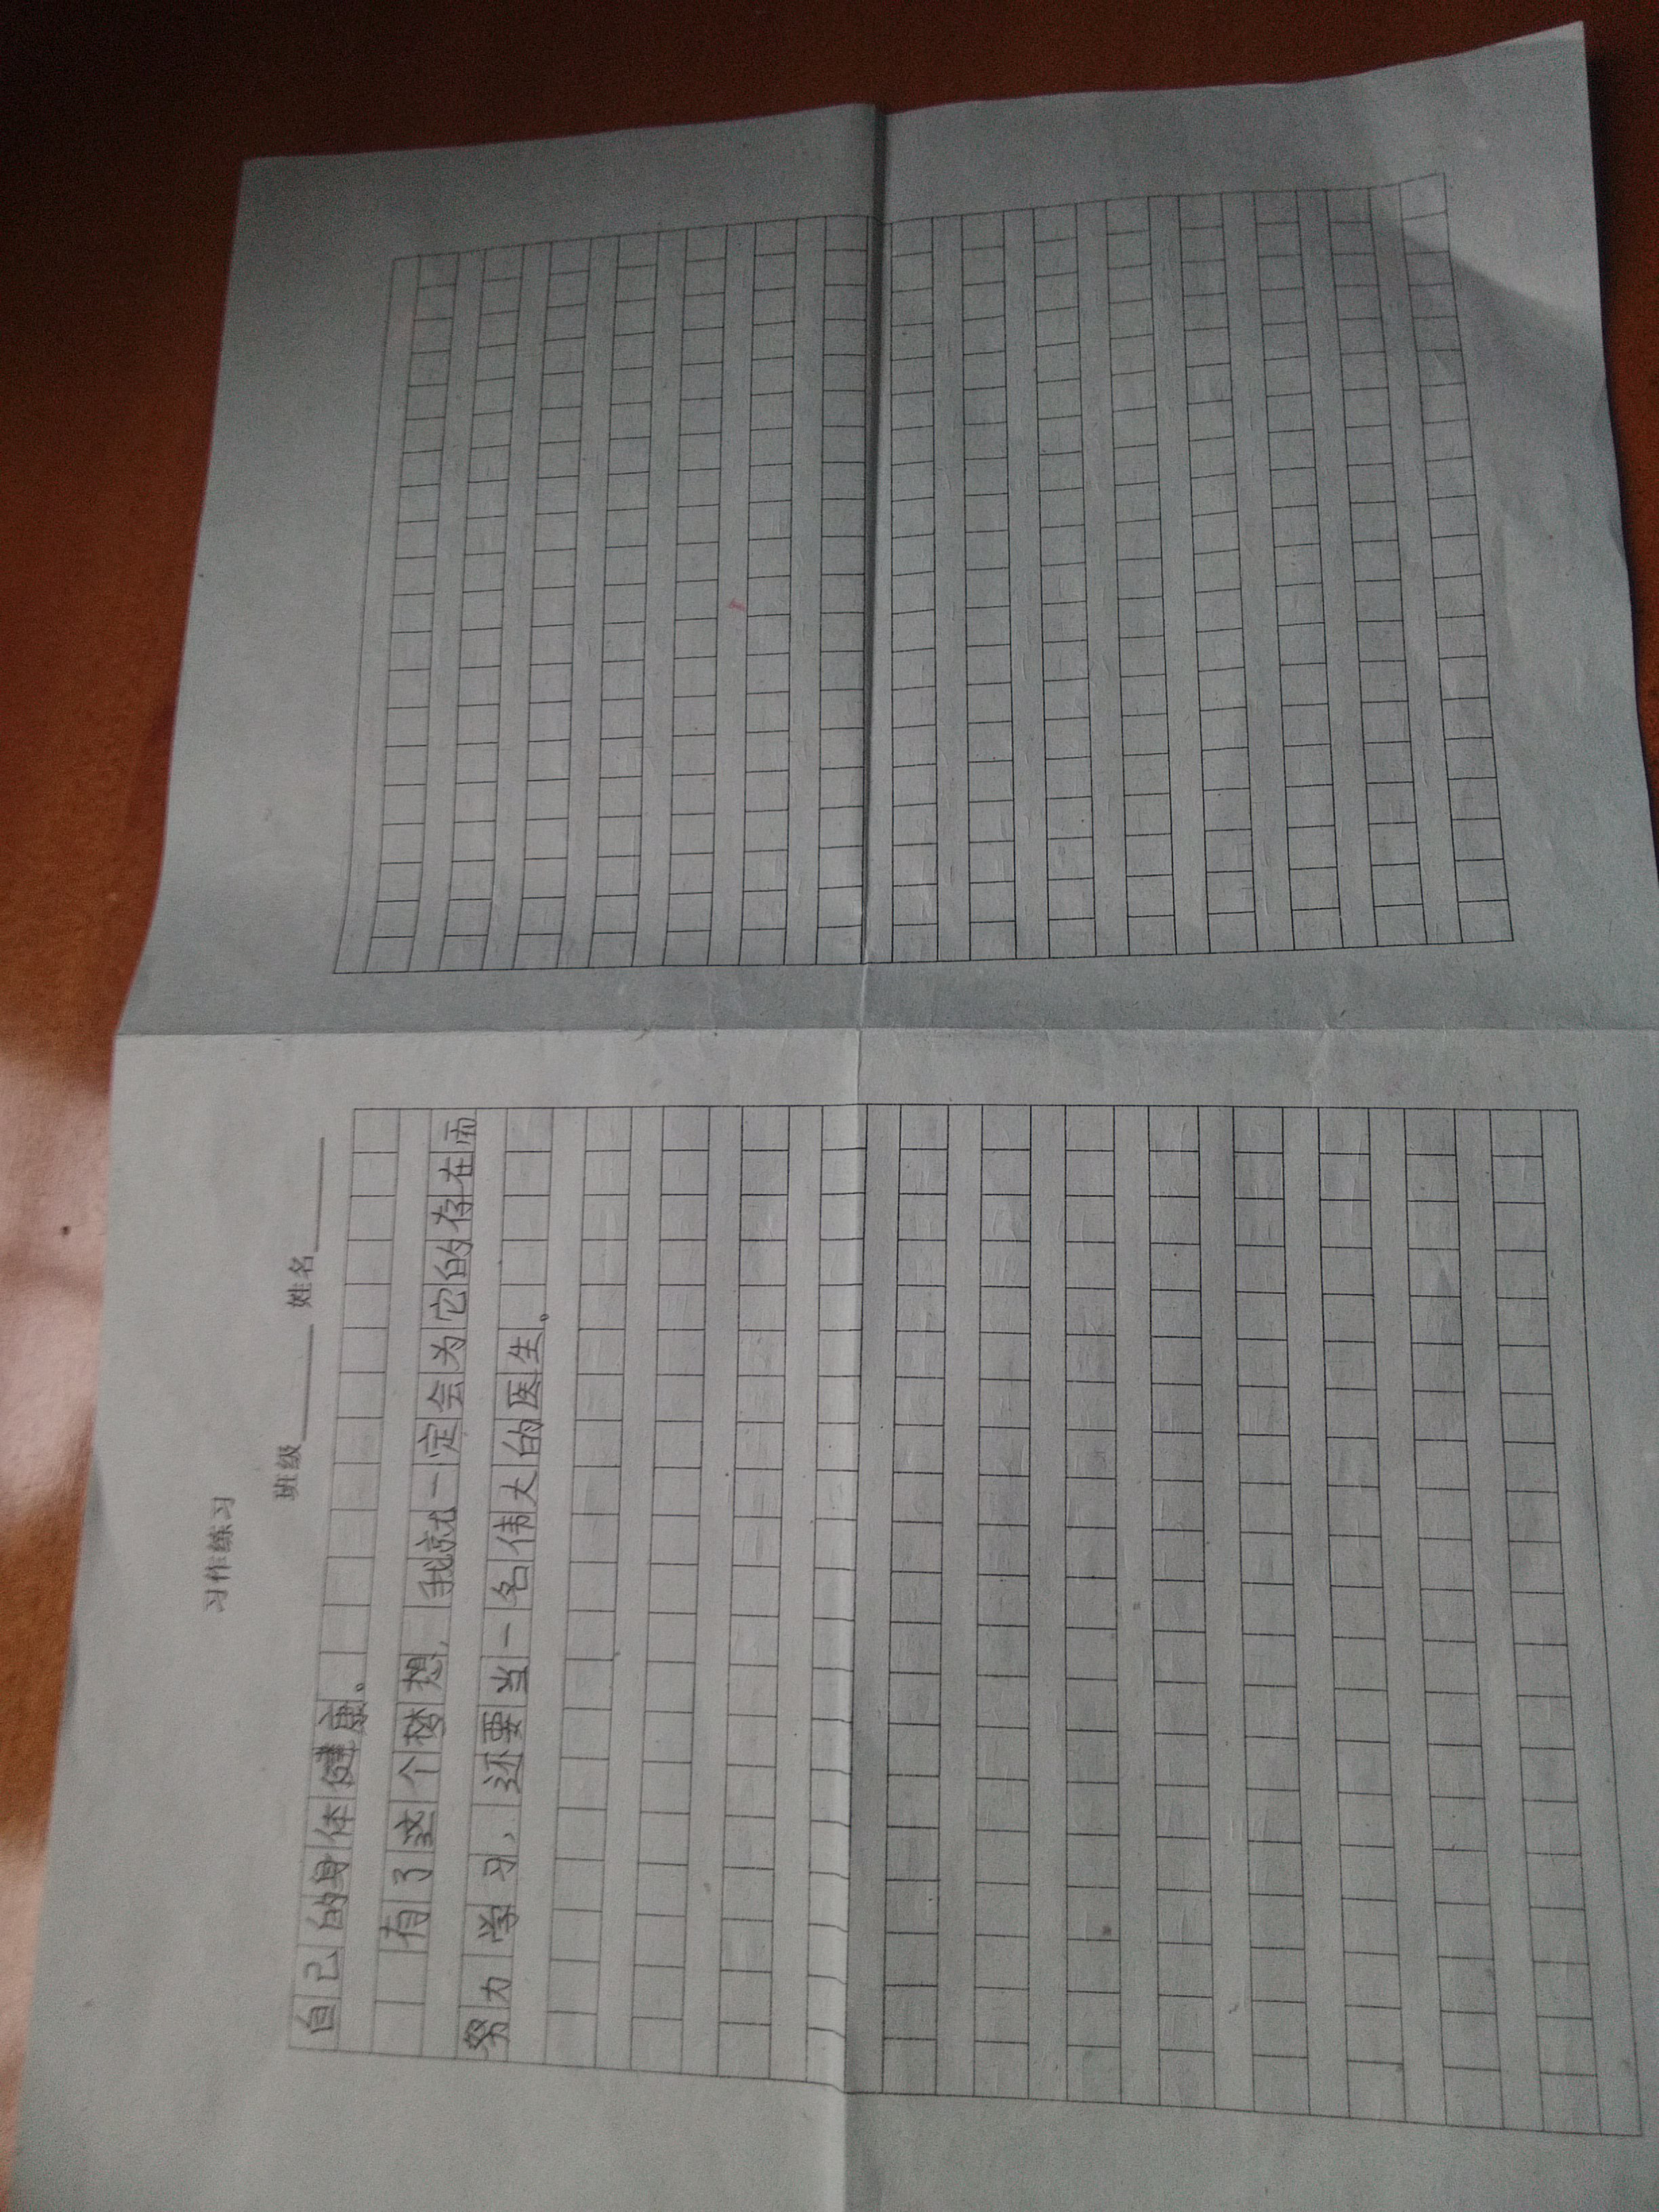 习作练习
班级 姓名
自己的身体健康。
有了这个梦想，我就一定会为它的存在而
努力学习，还要当一名伟大的医生。